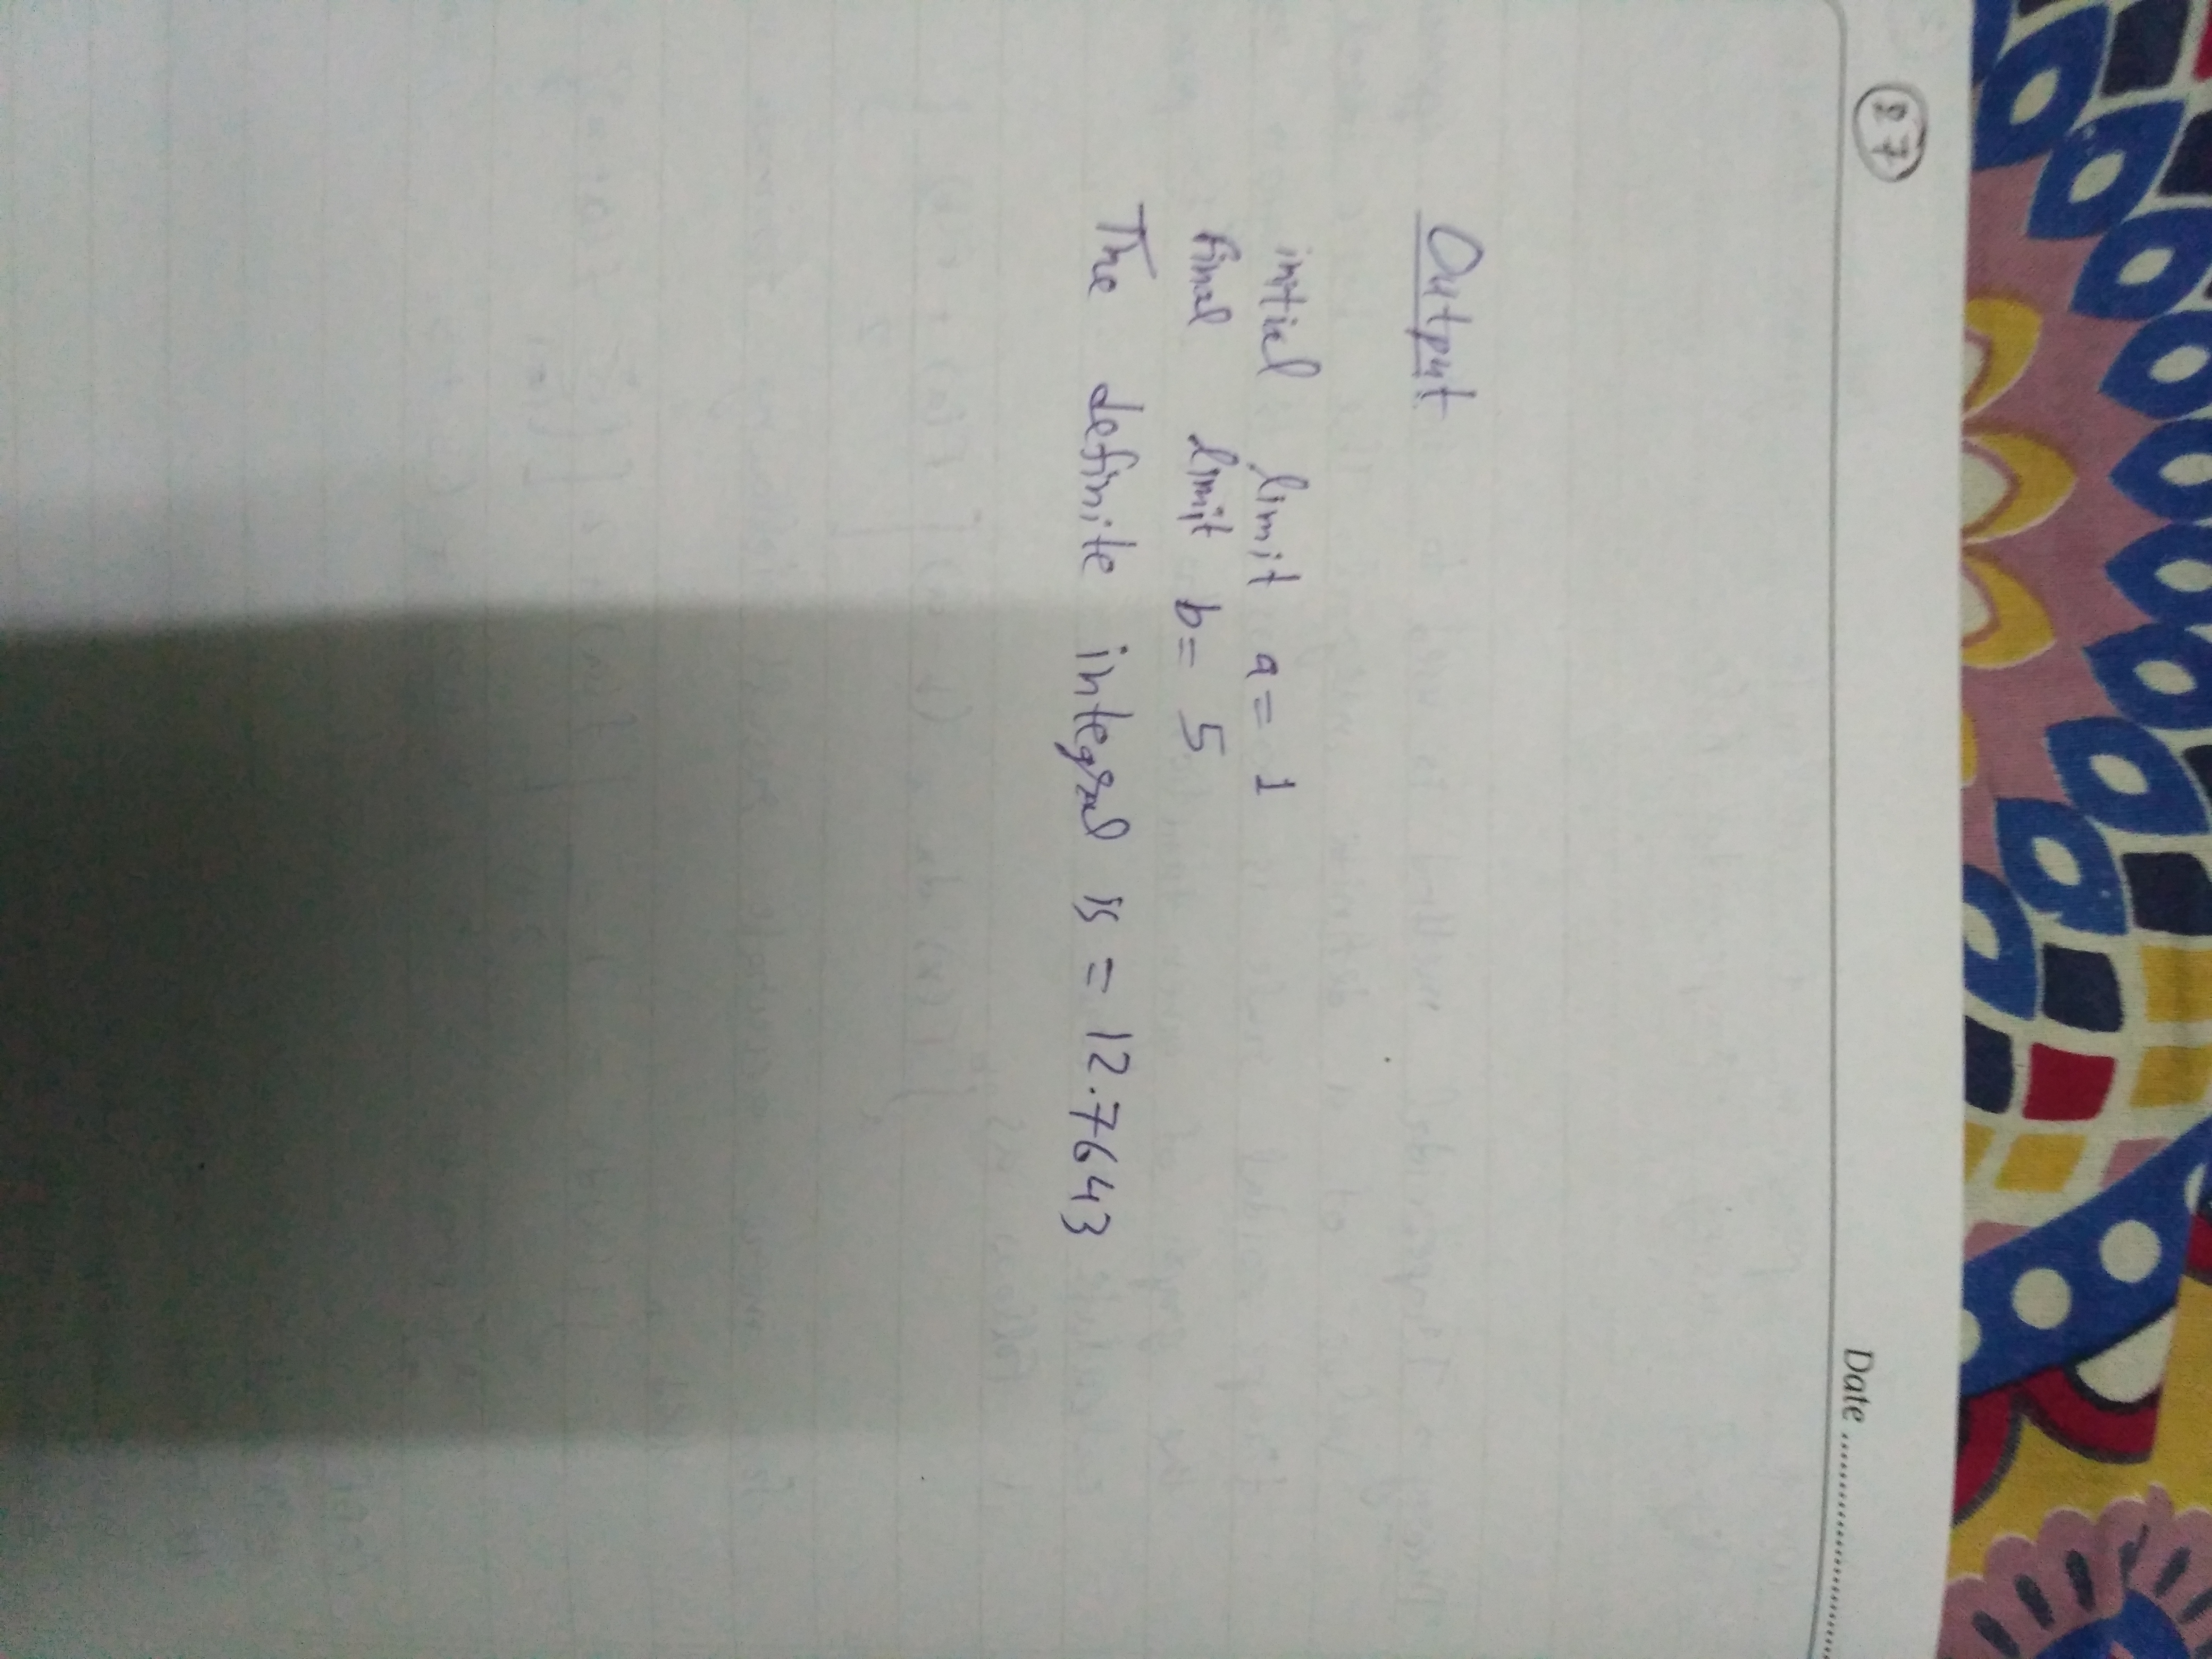 27
Date
Output
initial limit a= 1
final limit b= 5
The definite integral is = 12.7643